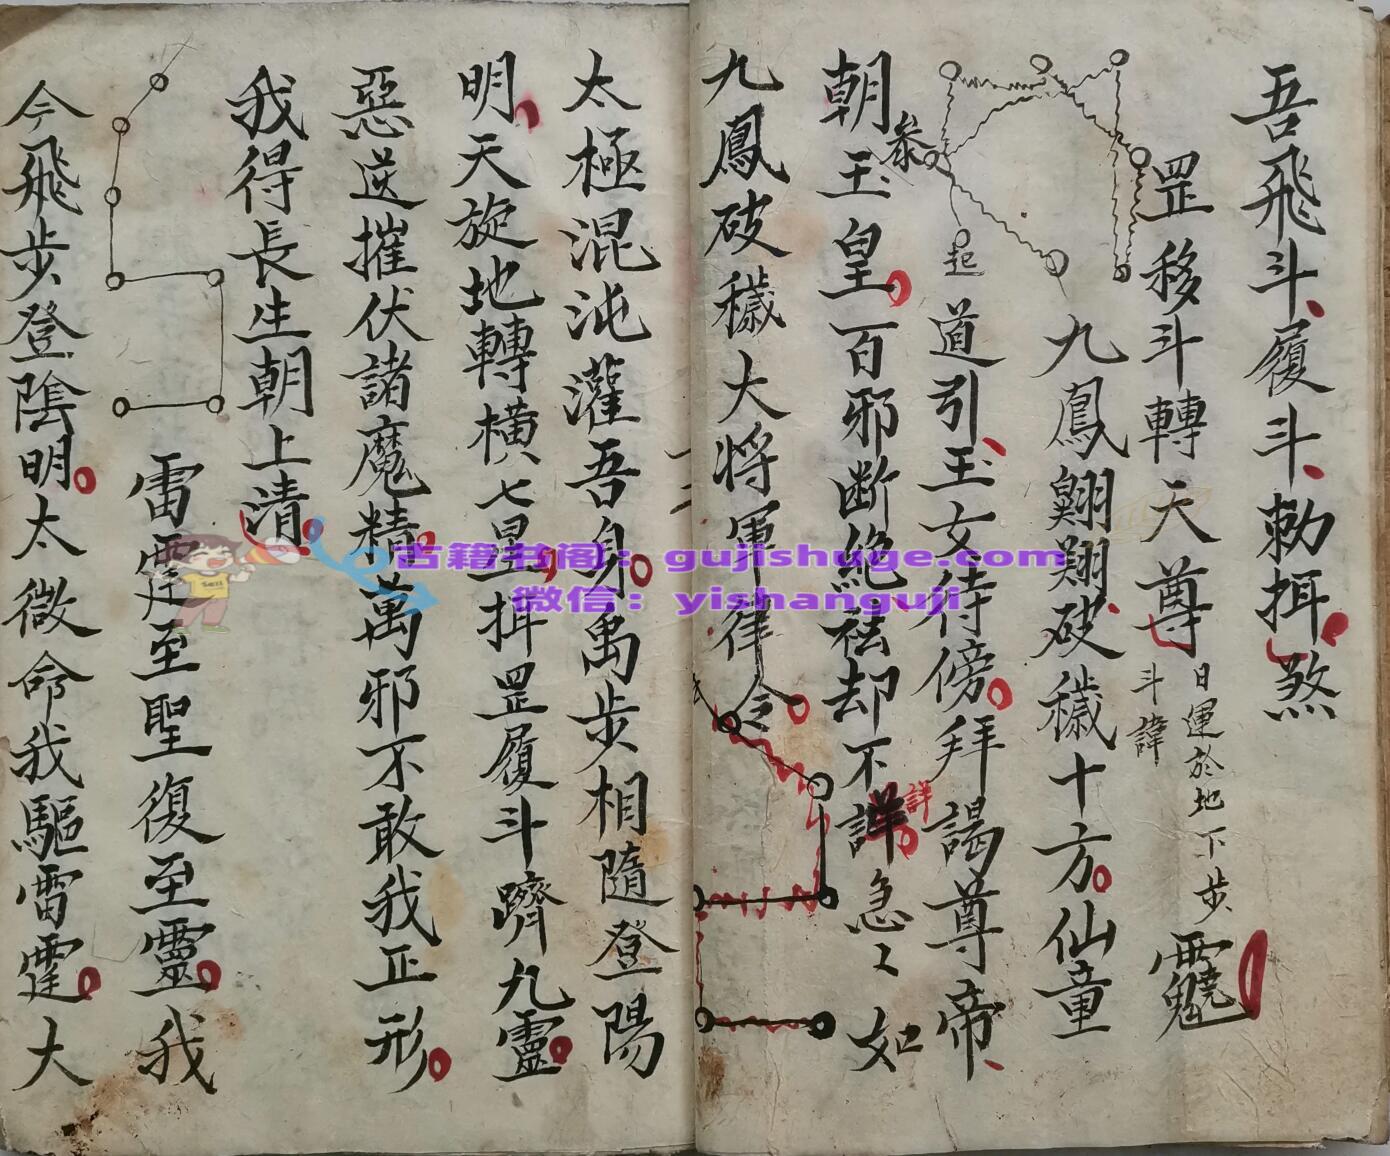 吾飛斗、履斗、勅挕。煞
罡移斗轉天尊
日運於地下步
斗諱
九鳳翺翔、破穢十方。仙童
起
道引、玉女侍傍。拜謁尊帝、
参
朝玉皇。百邪断絶、祛却不詳
詳
急〻如
九鳳破穢大将軍律令。
太極混沌灌吾身。禹步相隨登陽
明、天旋地轉横七星、挕罡履斗躋九靈。
惡逆摧伏諸魔精。萬邪不敢我正形。
我得長生朝上清。
雷霆至聖復至靈。我
今飛步登陰明。太微命我驅雷霆。大
古籍书阁：gujishuge.com
微信：yishanguji